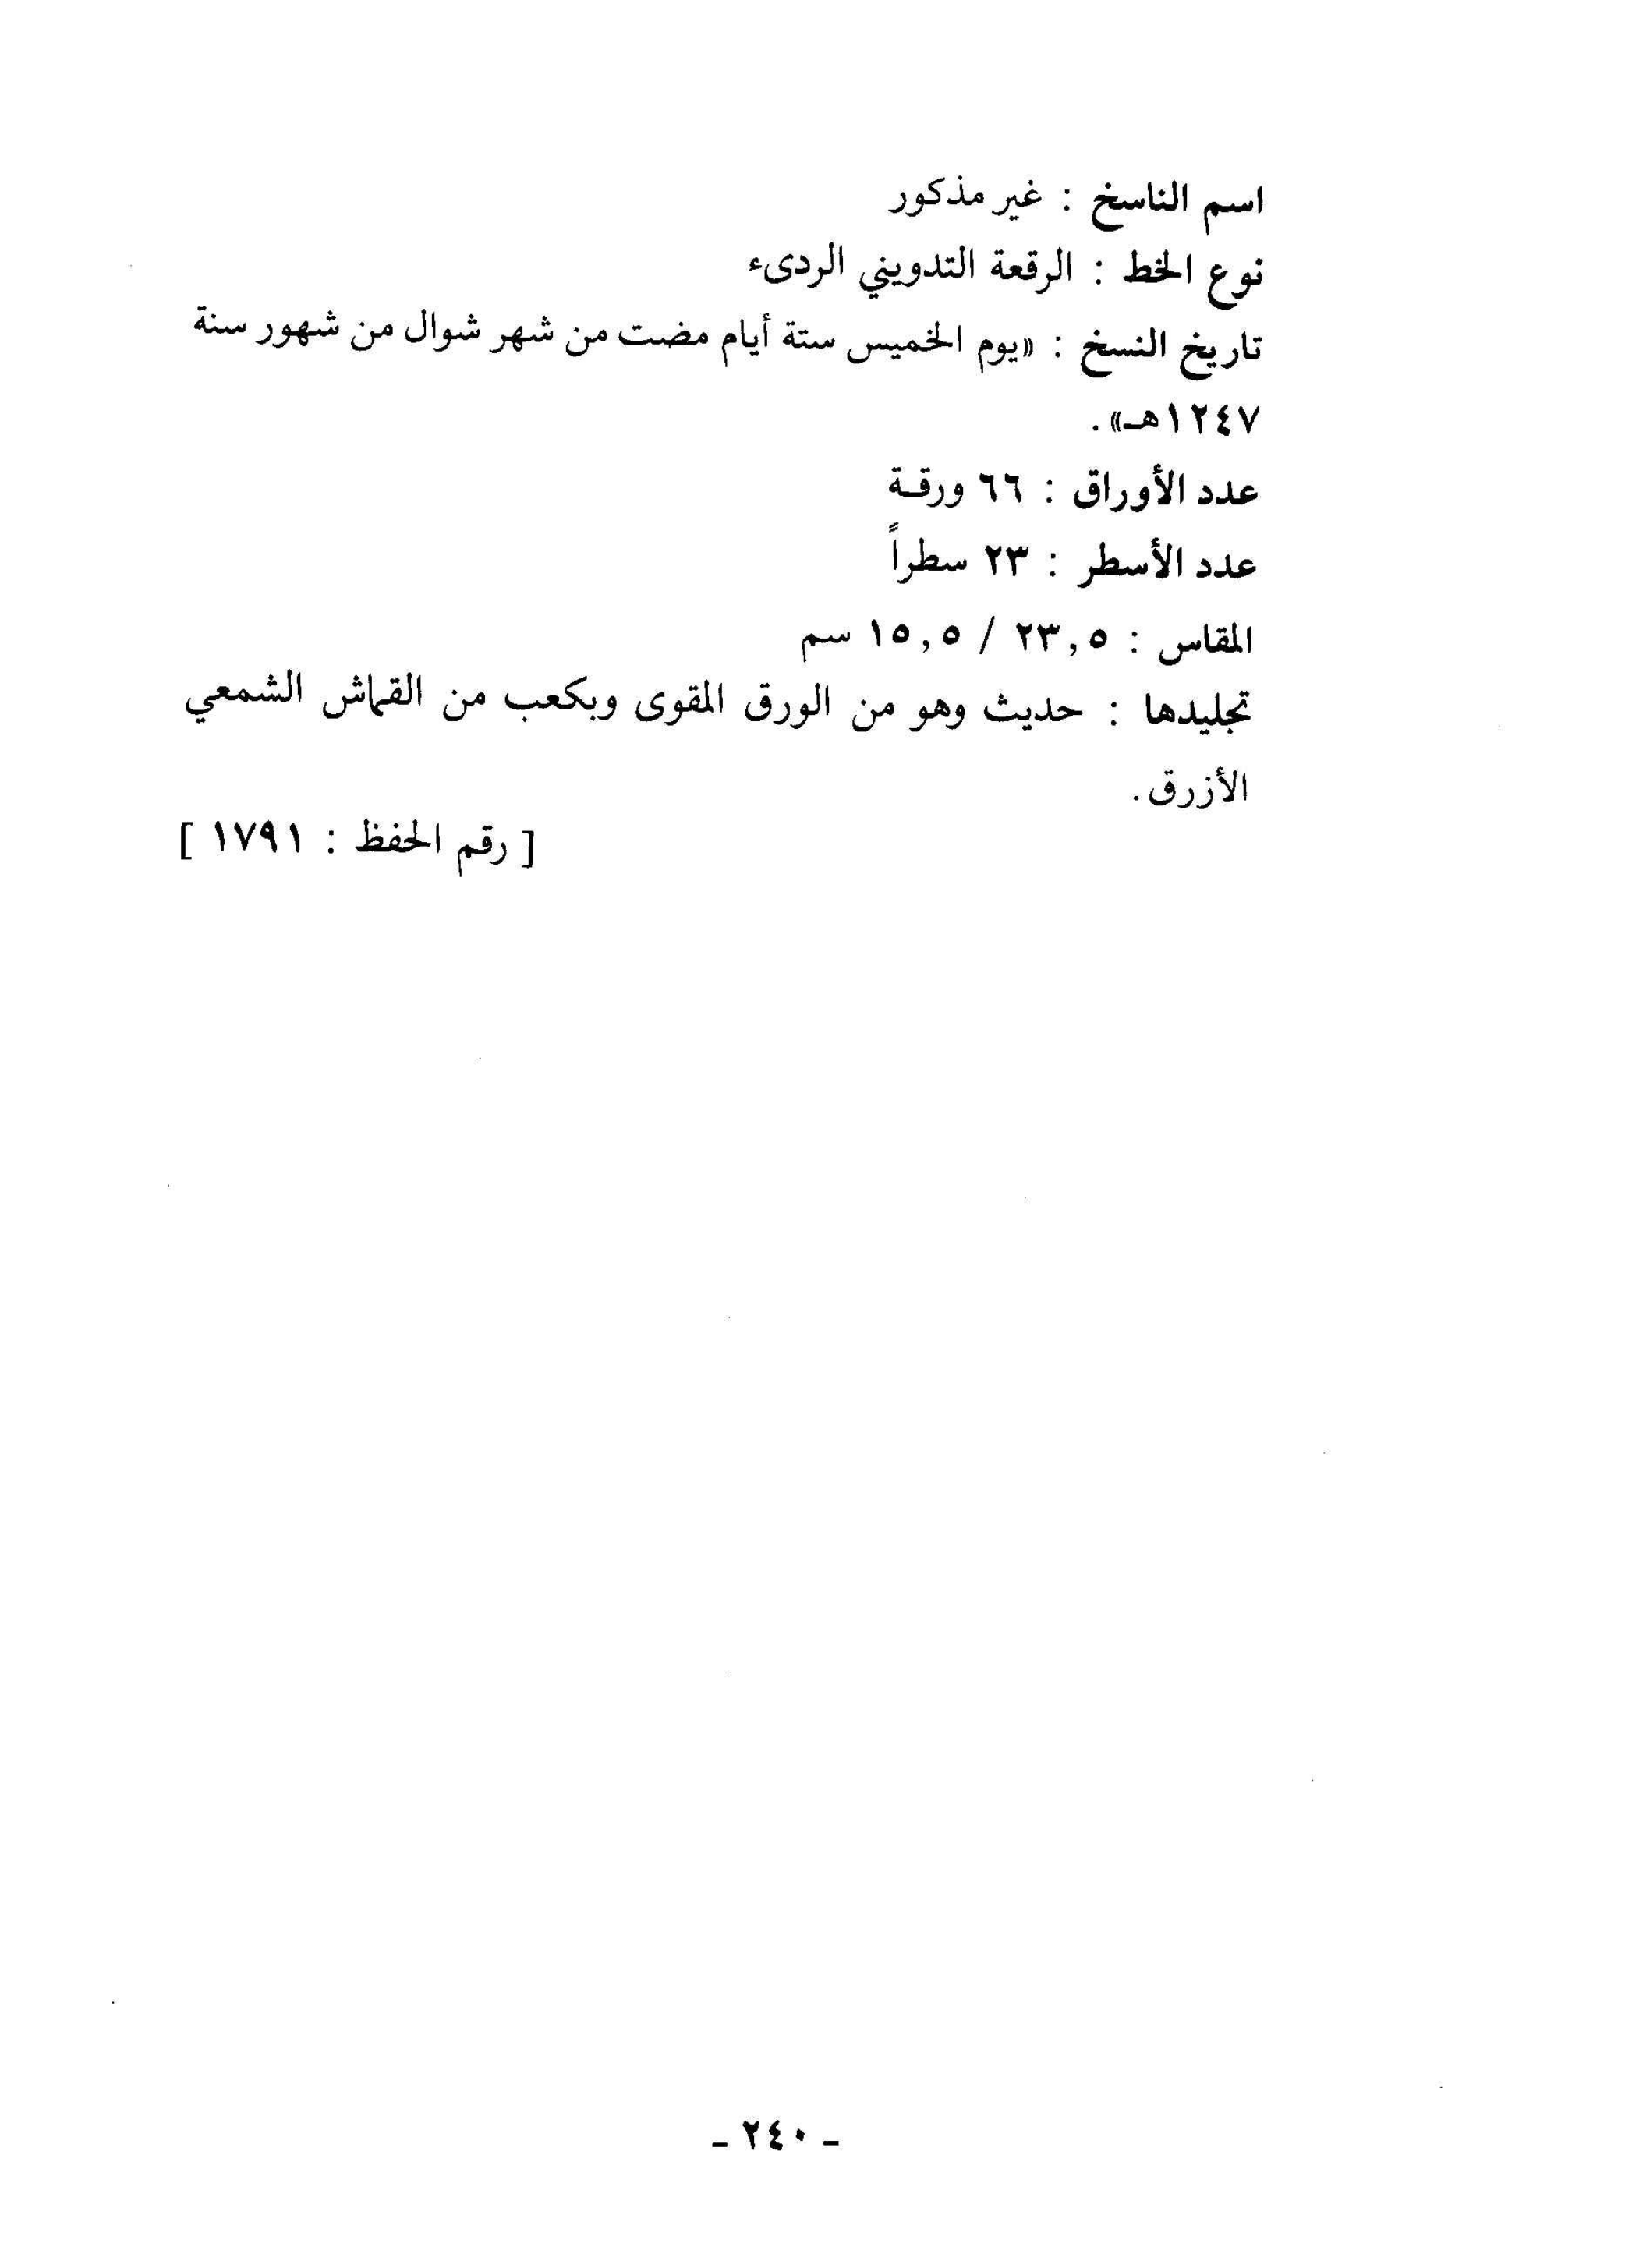 اسم الناسخ : غير مذكور
نوع الخط : الرقعة التدويني الردىء
تاريخ النسخ : «يوم الخميس ستة أيام مضت من شهر شوال من شهور سنة
١٢٤٧هـ» .
عدد الأوراق : ٦٦ ورقـة
عدد الأسطر : ٢٣ سطراً
المقاس : ٢٣,٥ / ١٥,٥ سم
تجليدها : حديث وهو من الورق المقوى وبكعب من القماش الشمعي
الأزرق .
[ رقم الحفظ : ١٧٩١ ]
- ٢٤٠ -